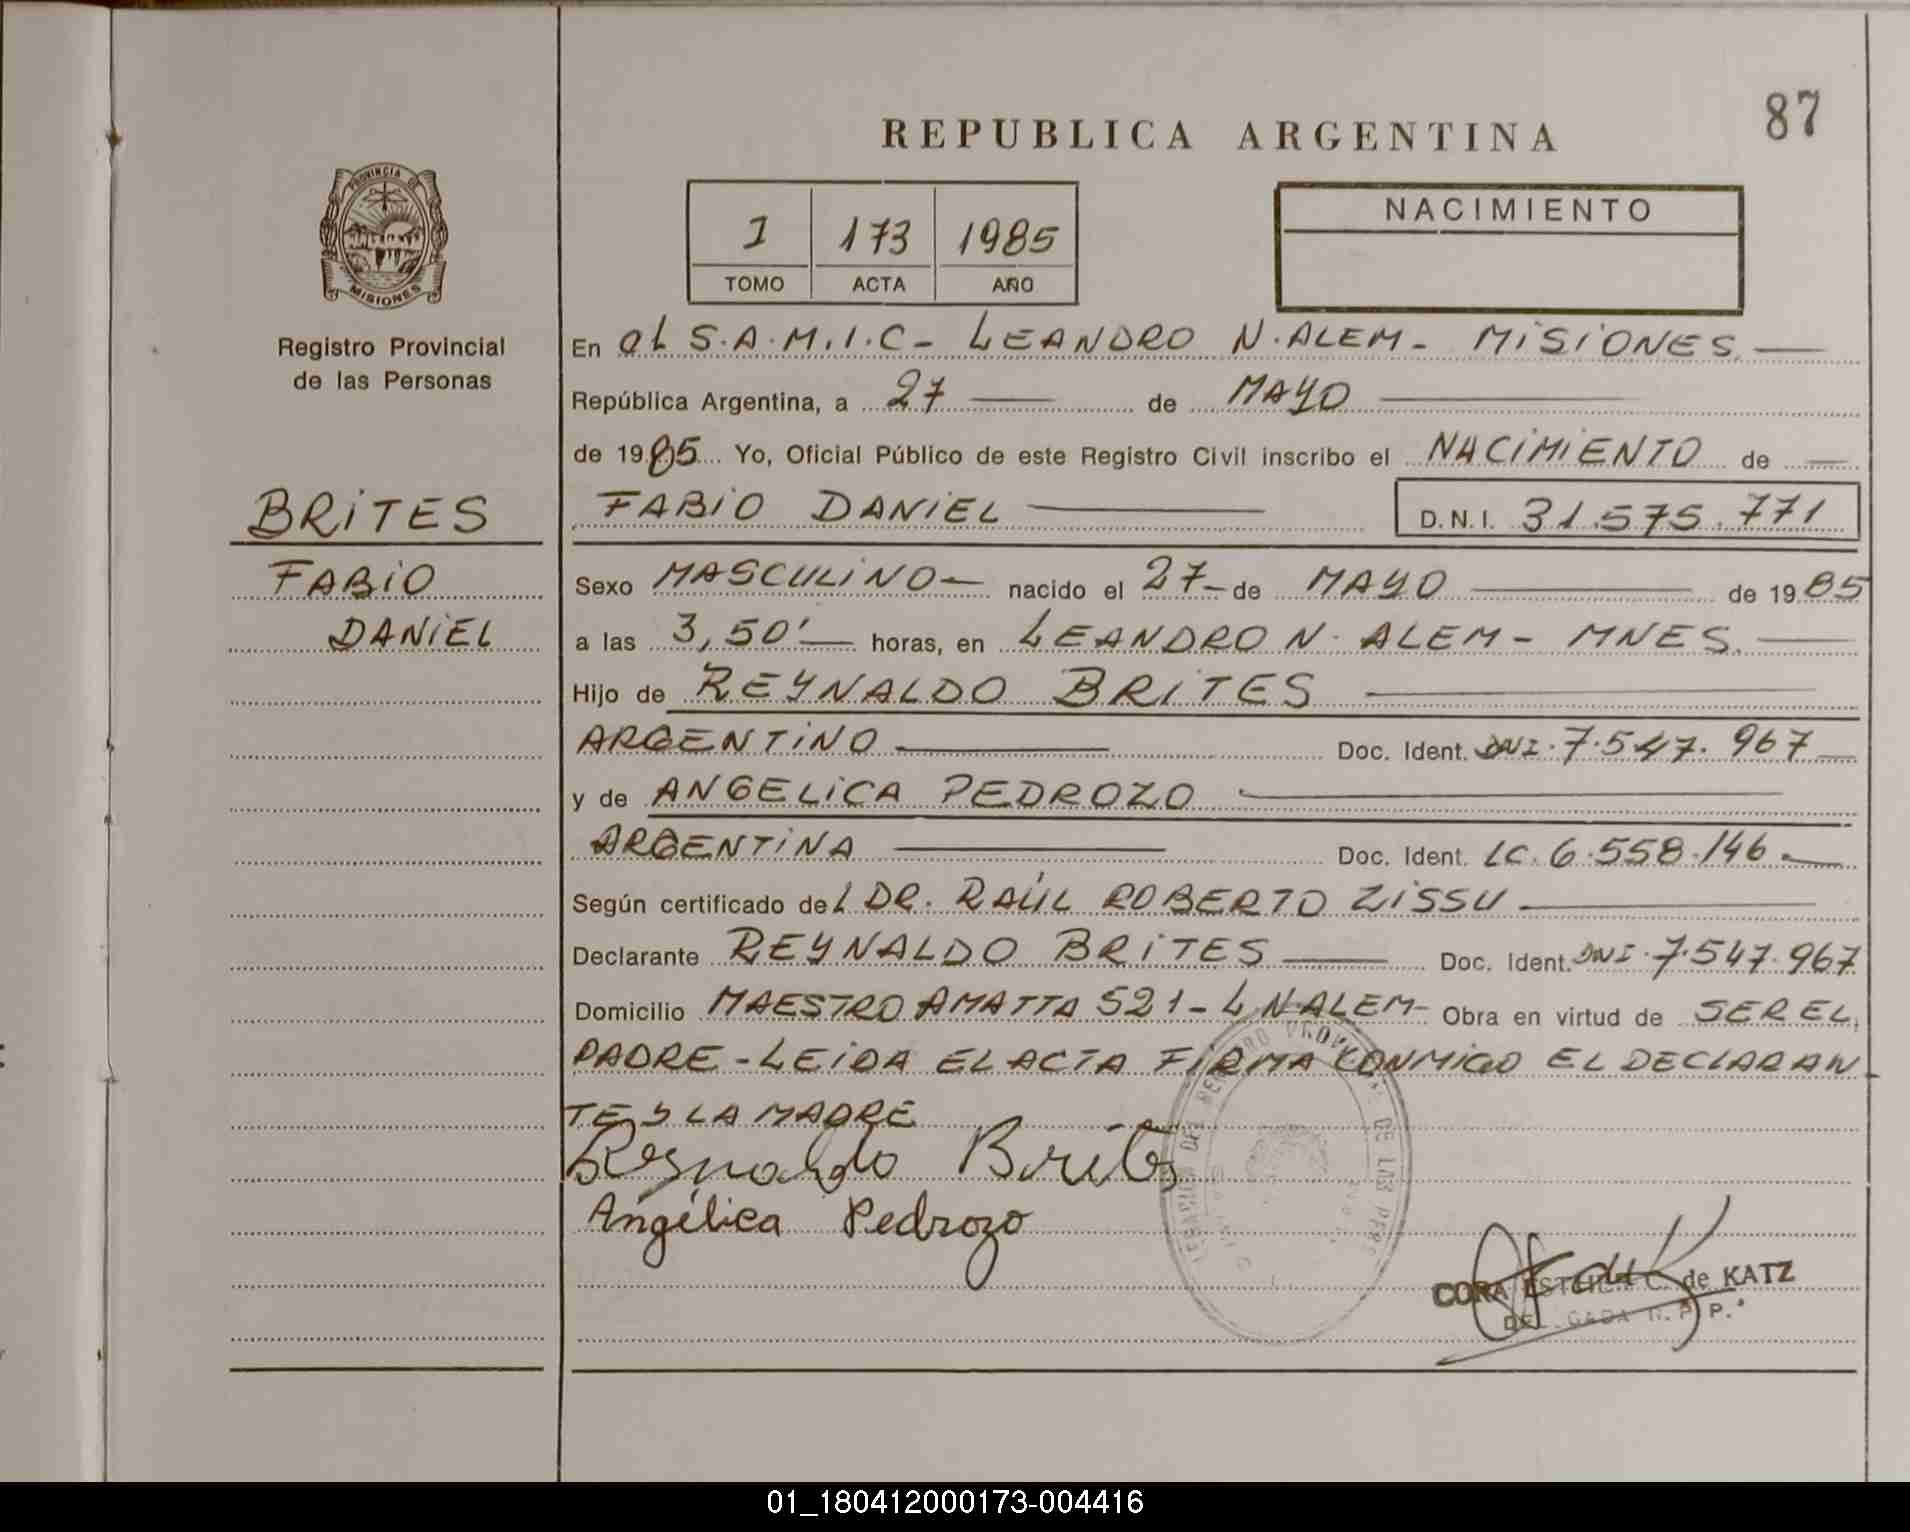 87
REPUBLICA ARGENTINA
PROVINCIA DE
MISIONES
Registro Provincial
de las Personas
I 173 1985
TOMO ACTA AÑO
NACIMIENTO
En el S.A.M.I.C- LEANDRO N. ALEM- MISIONES
República Argentina, a 27 de MAYO
de 1985 Yo, Oficial Público de este Registro Civil inscribo el NACIMIENTO de
BRITES
FABIO DANIEL D.N.I. 31.575.771
FABIO
DANIEL
Sexo MASCULINO nacido el 27 de MAYO de 1985
a las 3,50' horas, en LEANDRO N. ALEM- MNES.
Hijo de REYNALDO BRITES
ARGENTINO Doc. Ident. DNI. 7.547.967
y de ANGELICA PEDROZO
ARGENTINA Doc. Ident. LC. 6.558.146
Según certificado del DR. RAÚL ROBERTO ZISSU
Declarante REYNALDO BRITES Doc. Ident. DNI. 7.547.967
Domicilio MAESTRO AMATTA 521- L N. ALEM- Obra en virtud de SER EL
PADRE - LEIDA EL ACTA FIRMA CONMIGO EL DECLARAN-
TE Y LA MADRE
Reynaldo Brites
Angélica Pedrozo
CORA ESTHER C. de KATZ
DELEGADA R. P. P.
01_180412000173-004416